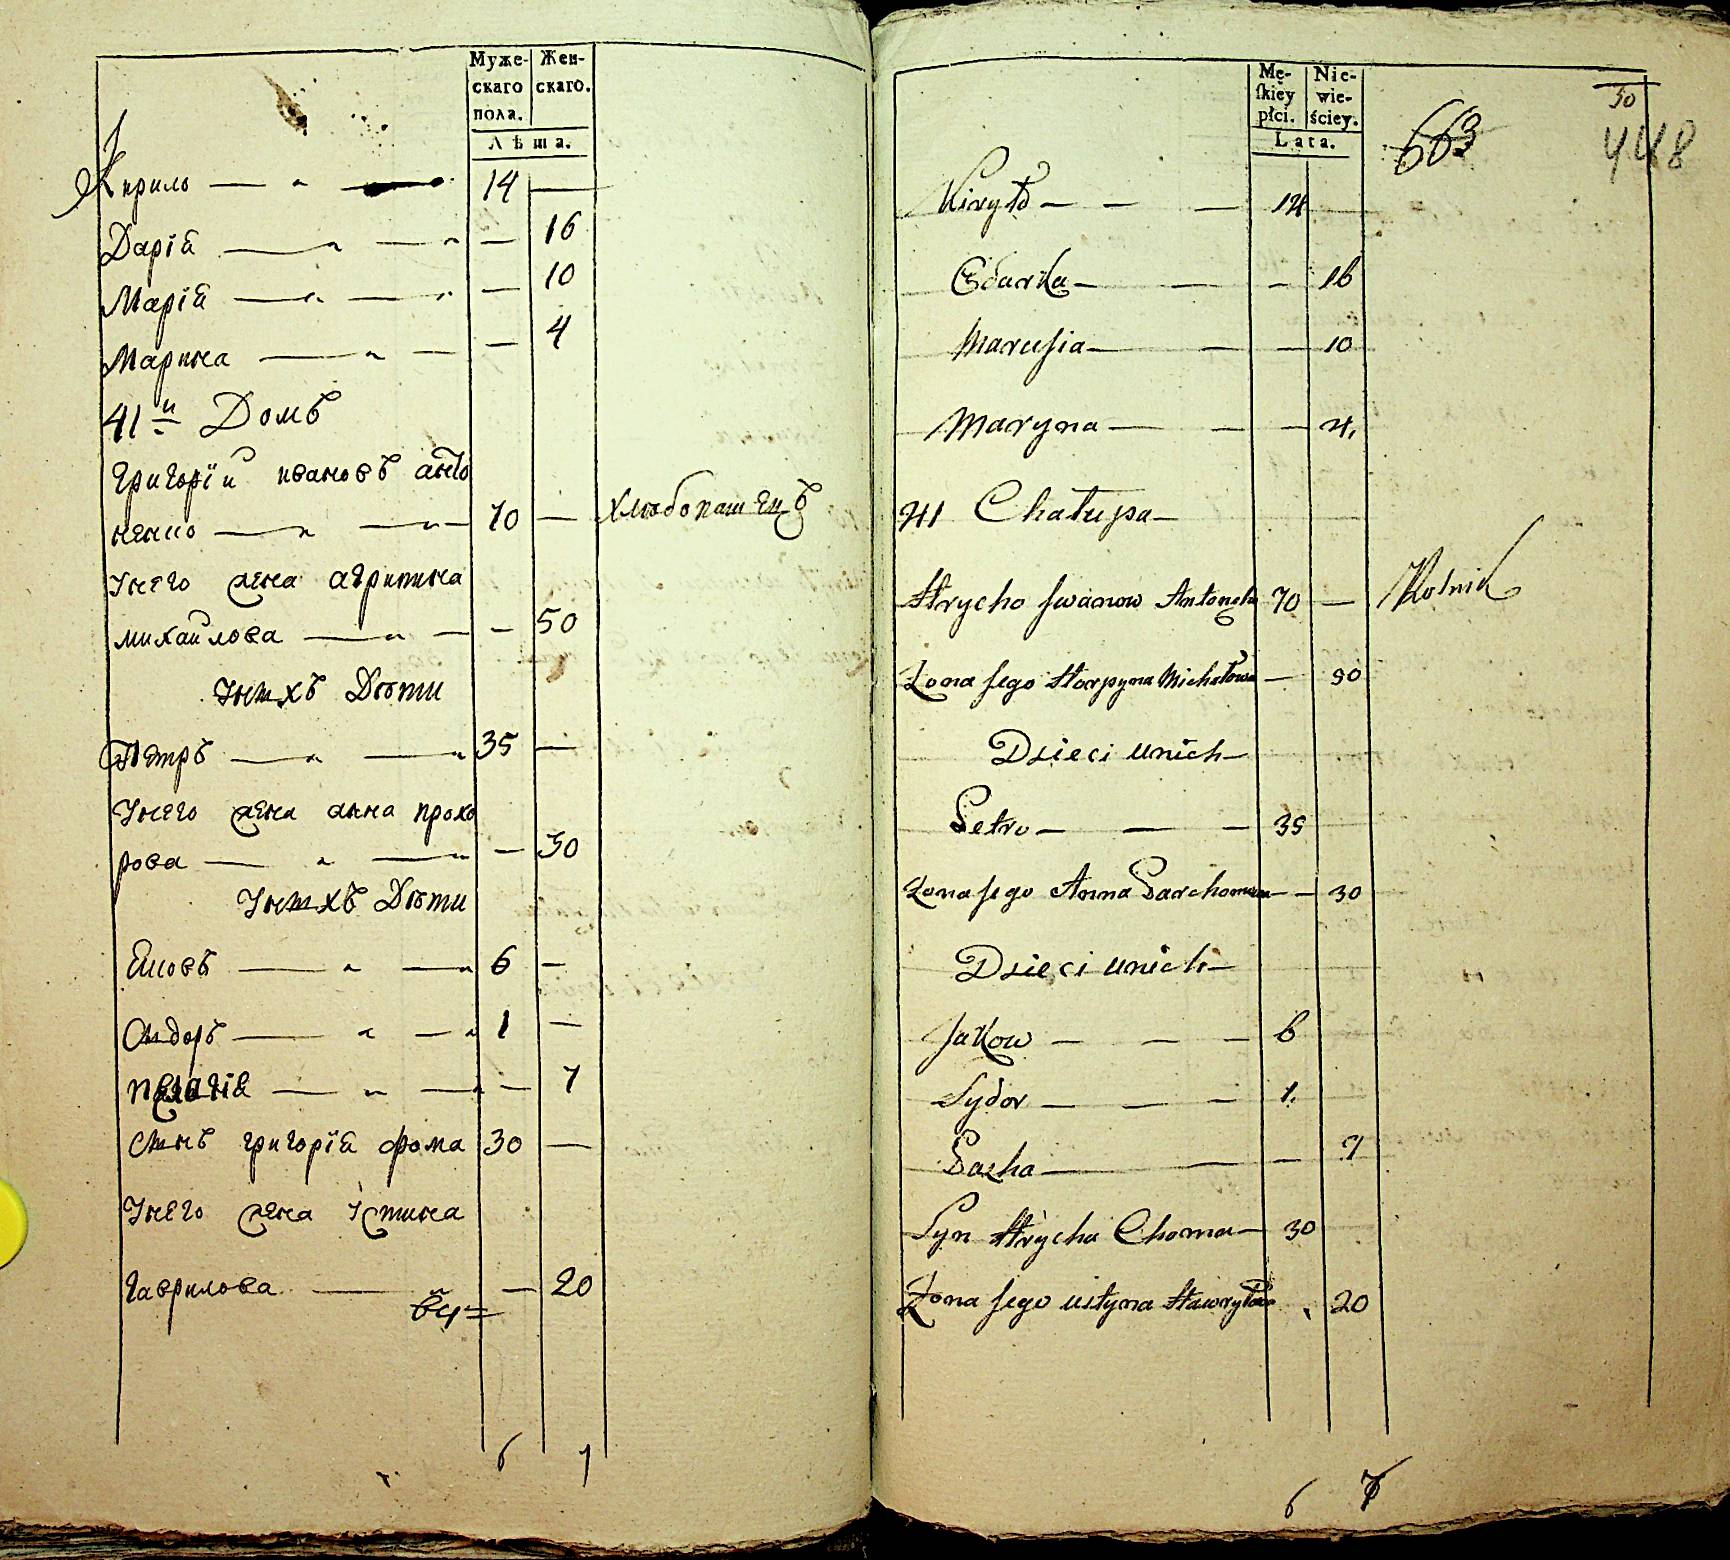 Муже-скаго пола. Жен-скаго.
Лѣта.
Кирило 14
Дарїя 16
Марїя 10
Марина 4
41й Домъ
Григорїй ивановъ анто
ненко 70 хлѣбопашецъ
Унего жена агрипина
михайлова 50
Унихъ Дѣти
Петръ 35
Унего жена анна прохо
рова 30
Унихъ Дѣти
Яковъ 6
Сидоръ 1
пелагїя 7
Сынъ григорїя фома 30
Унего жена устина
Гаврилова 20
6 7
Mę-skiey płci. Nie-wie-ściey.
Lata.
663
50
448
Kiryło 14
Odarka 16
Marusia 10
Maryna 4.
41 Chałupa
Hrycho Iwanow Antonenko 70 Rolnik
Żona Jego Horpyna Michałowa 50
Dzieci unich
Petro 35
Żona Jego Anna Parchomowa 30
Dzieci unich
Jakow 6
Sydor 1.
Pazha 7
Syn Hrycha Choma 30
Żona Jego Ustyna Hawryłowa 20
6 7